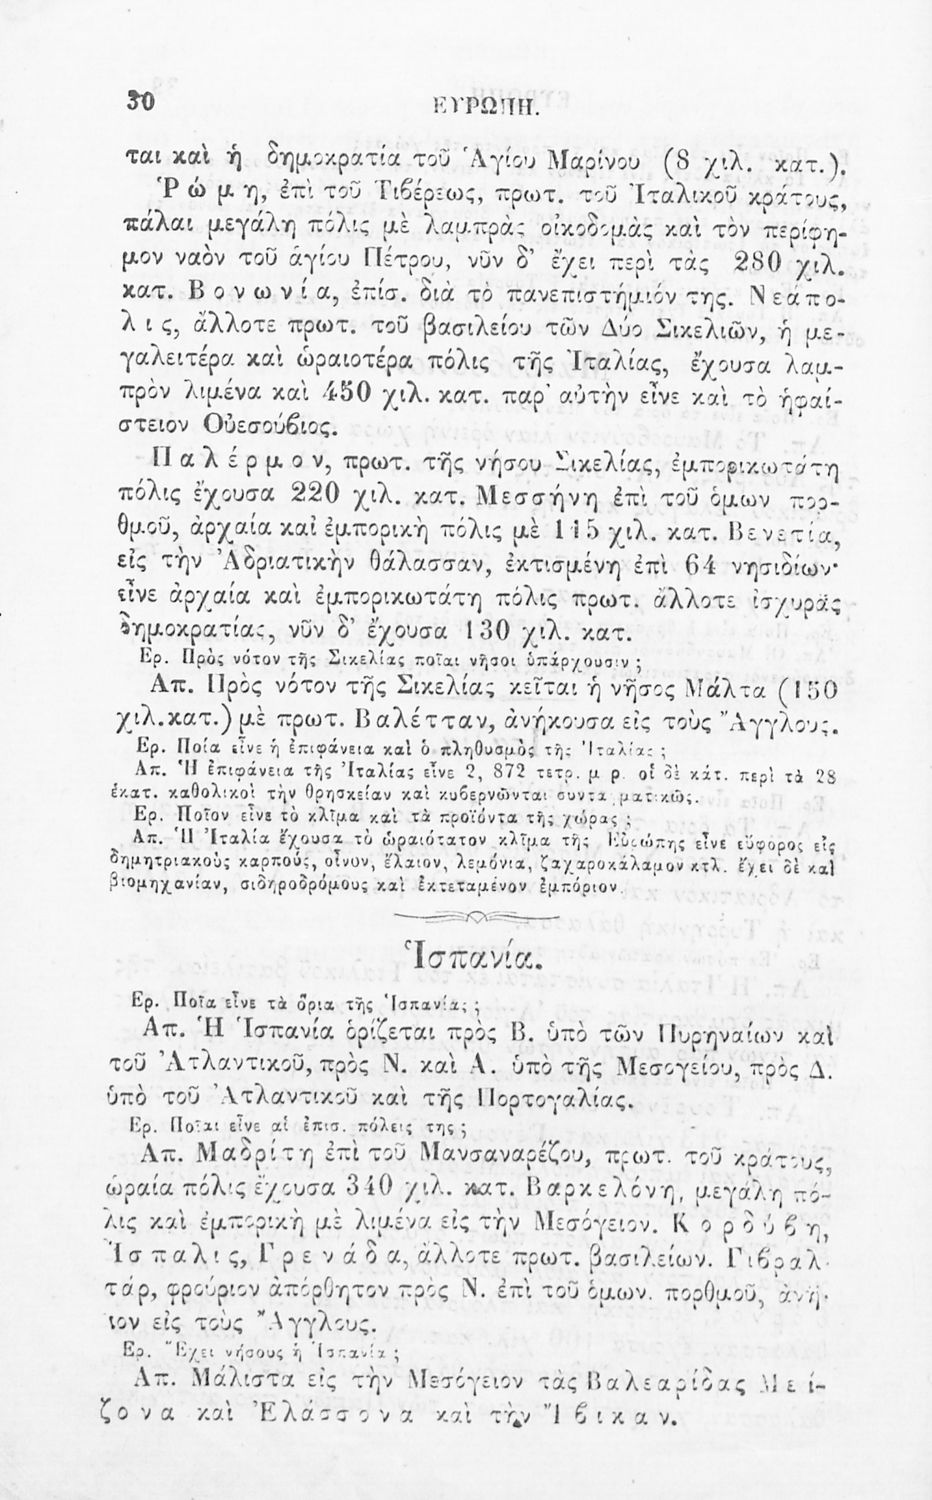 30
ΕΥΡΩΠΗ.
ται καὶ ἡ δημοκρατία τοῦ Ἁγίου Μαρίνου (8 χιλ. κατ.).
Ῥώμη, ἐπὶ τοῦ Τιβέρεως, πρωτ. τοῦ Ἰταλικοῦ κράτους,
πάλαι μεγάλη πόλις μὲ λαμπρὰς οἰκοδομὰς καὶ τὸν περίφη-
μον ναὸν τοῦ ἁγίου Πέτρου, νῦν δ' ἔχει περὶ τὰς 280 χιλ.
κατ. Βονωνία, ἐπίσ. διὰ τὸ πανεπιστήμιόν της. Νεάπο-
λις, ἄλλοτε πρωτ. τοῦ βασιλείου τῶν Δύο Σικελιῶν, ἡ με-
γαλειτέρα καὶ ὡραιοτέρα πόλις τῆς Ἰταλίας, ἔχουσα λαμ-
πρὸν λιμένα καὶ 450 χιλ. κατ. παρ' αὐτὴν εἶνε καὶ τὸ ἡφαί-
στειον Οὐεσούβιος.
Παλέρμον, πρωτ. τῆς νήσου Σικελίας, ἐμπορικωτάτη
πόλις ἔχουσα 220 χιλ. κατ. Μεσσήνη ἐπὶ τοῦ ὁμων πορ-
θμοῦ, ἀρχαία καὶ ἐμπορικὴ πόλις μὲ 115 χιλ. κατ. Βενετία,
εἰς τὴν Ἀδριατικὴν θάλασσαν, ἐκτισμένη ἐπὶ 64 νησιδίων·
εἶνε ἀρχαία καὶ ἐμπορικωτάτη πόλις πρωτ. ἄλλοτε ἰσχυρᾶς
δημοκρατίας, νῦν δ' ἔχουσα 130 χιλ. κατ.
Ερ. Πρὸς νότον τῆς Σικελίας ποῖαι νῆσοι ὑπάρχουσιν ;
Απ. Πρὸς νότον τῆς Σικελίας κεῖται ἡ νῆσος Μάλτα (150
χιλ.κατ.) μὲ πρωτ. Βαλέτταν, ἀνήκουσα εἰς τοὺς Ἄγγλους.
Ερ. Ποία εἶνε ἡ ἐπιφάνεια καὶ ὁ πληθυσμὸς τῆς Ἰταλίας ;
Απ. Ἡ ἐπιφάνεια τῆς Ἰταλίας εἶνε 2, 872 τετρ. μ ρ. οἱ δὲ κάτ. περὶ τὰ 28
ἑκατ. καθολικοὶ τὴν θρησκείαν καὶ κυβερνῶνται συνταγματικῶς.
Ερ. Ποῖον εἶνε τὸ κλῖμα καὶ τὰ προϊόντα τῆς χώρας ;
Απ. Ἡ Ἰταλία ἔχουσα τὸ ὡραιότατον κλῖμα τῆς Εὐρώπης εἶνε εὔφορος εἰς
δημητριακοὺς καρπούς, οἶνον, ἔλαιον, λεμόνια, ζαχαροκάλαμον κτλ. ἔχει δὲ καὶ
βιομηχανίαν, σιδηροδρόμους καὶ ἐκτεταμένον ἐμπόριον.
Ἱσπανία.
Ερ. Ποῖα εἶνε τὰ ὅρια τῆς Ἱσπανίας ;
Απ. Ἡ Ἱσπανία ὁρίζεται πρὸς Β. ὑπὸ τῶν Πυρηναίων καὶ
τοῦ Ἀτλαντικοῦ, πρὸς Ν. καὶ Α. ὑπὸ τῆς Μεσογείου, πρὸς Δ.
ὑπὸ τοῦ Ἀτλαντικοῦ καὶ τῆς Πορτογαλίας.
Ερ. Ποῖαι εἶνε αἱ ἐπισ. πόλεις της ;
Απ. Μαδρίτη ἐπὶ τοῦ Μανσαναρέζου, πρωτ. τοῦ κράτους,
ὡραία πόλις ἔχουσα 340 χιλ. κατ. Βαρκελόνη, μεγάλη πό-
λις καὶ ἐμπορικὴ μὲ λιμένα εἰς τὴν Μεσόγειον. Κορδύβη,
Ἵσπαλις, Γρενάδα, ἄλλοτε πρωτ. βασιλείων. Γιβραλ-
τάρ, φρούριον ἀπόρθητον πρὸς Ν. ἐπὶ τοῦ ὁμων. πορθμοῦ, ἀνῆ-
κον εἰς τοὺς Ἄγγλους.
Ερ. Ἔχει νήσους ἡ Ἱσπανία ;
Απ. Μάλιστα εἰς τὴν Μεσόγειον τὰς Βαλεαρίδας Μεί-
ζονα καὶ Ἐλάσσονα καὶ τὴν Ἴβικαν.